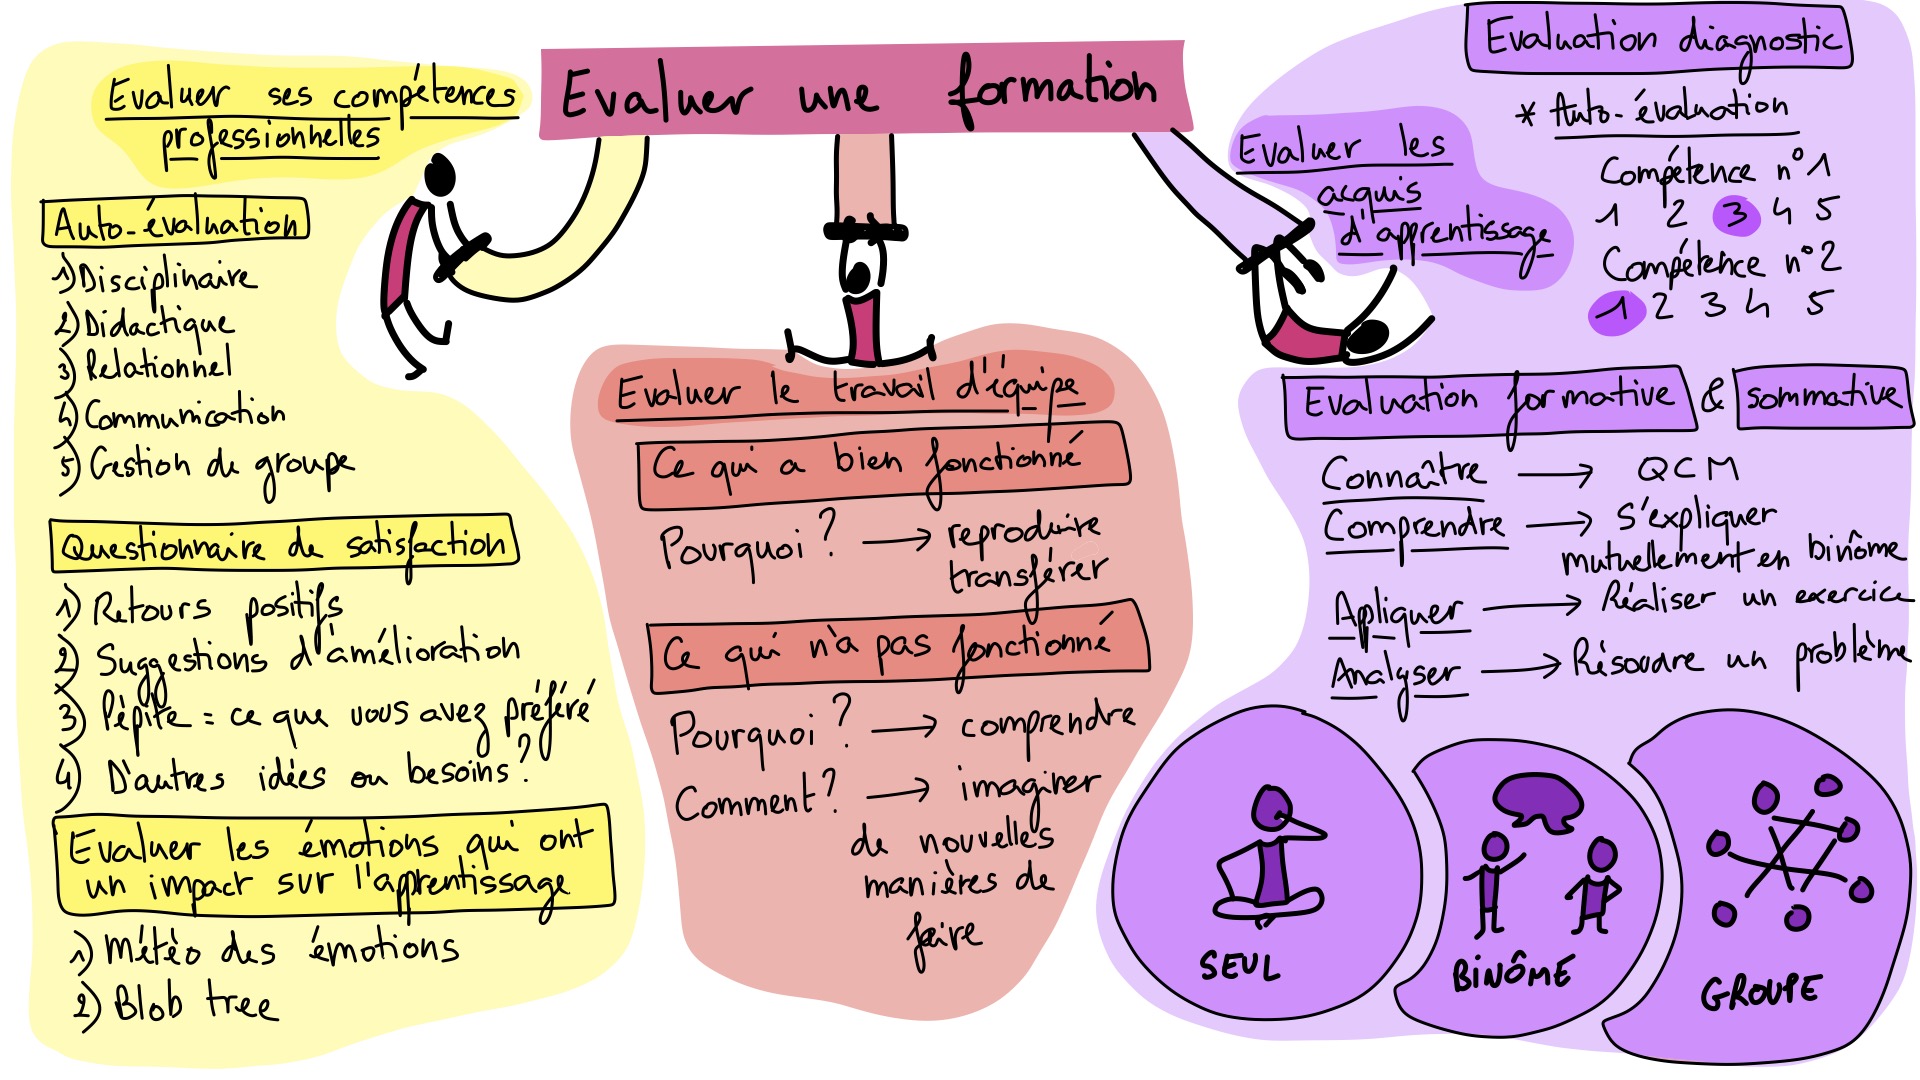 Evaluer une formation
Evaluer ses compétences
professionnelles
Auto-évaluation
1) Disciplinaire
2) Didactique
3) Relationnel
4) Communication
5) Gestion de groupe
Questionnaire de satisfaction
1) Retours positifs
2) Suggestions d'amélioration
3) Pépite = ce que vous avez préféré
4) D'autres idées ou besoins?
Evaluer les émotions qui ont
un impact sur l'apprentissage
1) Météo des émotions
2) Blob tree
Evaluer le travail d'équipe
Ce qui a bien fonctionné
Pourquoi ? → reproduire
transférer
Ce qui n'a pas fonctionné
Pourquoi ? → comprendre
Comment ? → imaginer
de nouvelles
manières de
faire
Evaluer les
acquis
d'apprentissage
Evaluation diagnostic
* Auto-évaluation
Compétence n°1
1 2 3 4 5
Compétence n°2
1 2 3 4 5
Evaluation formative & sommative
Connaître → QCM
Comprendre → S'expliquer
mutuellement en binôme
Apliquer → Réaliser un exercice
Analyser → Résoudre un problème
SEUL
BINÔME
GROUPE